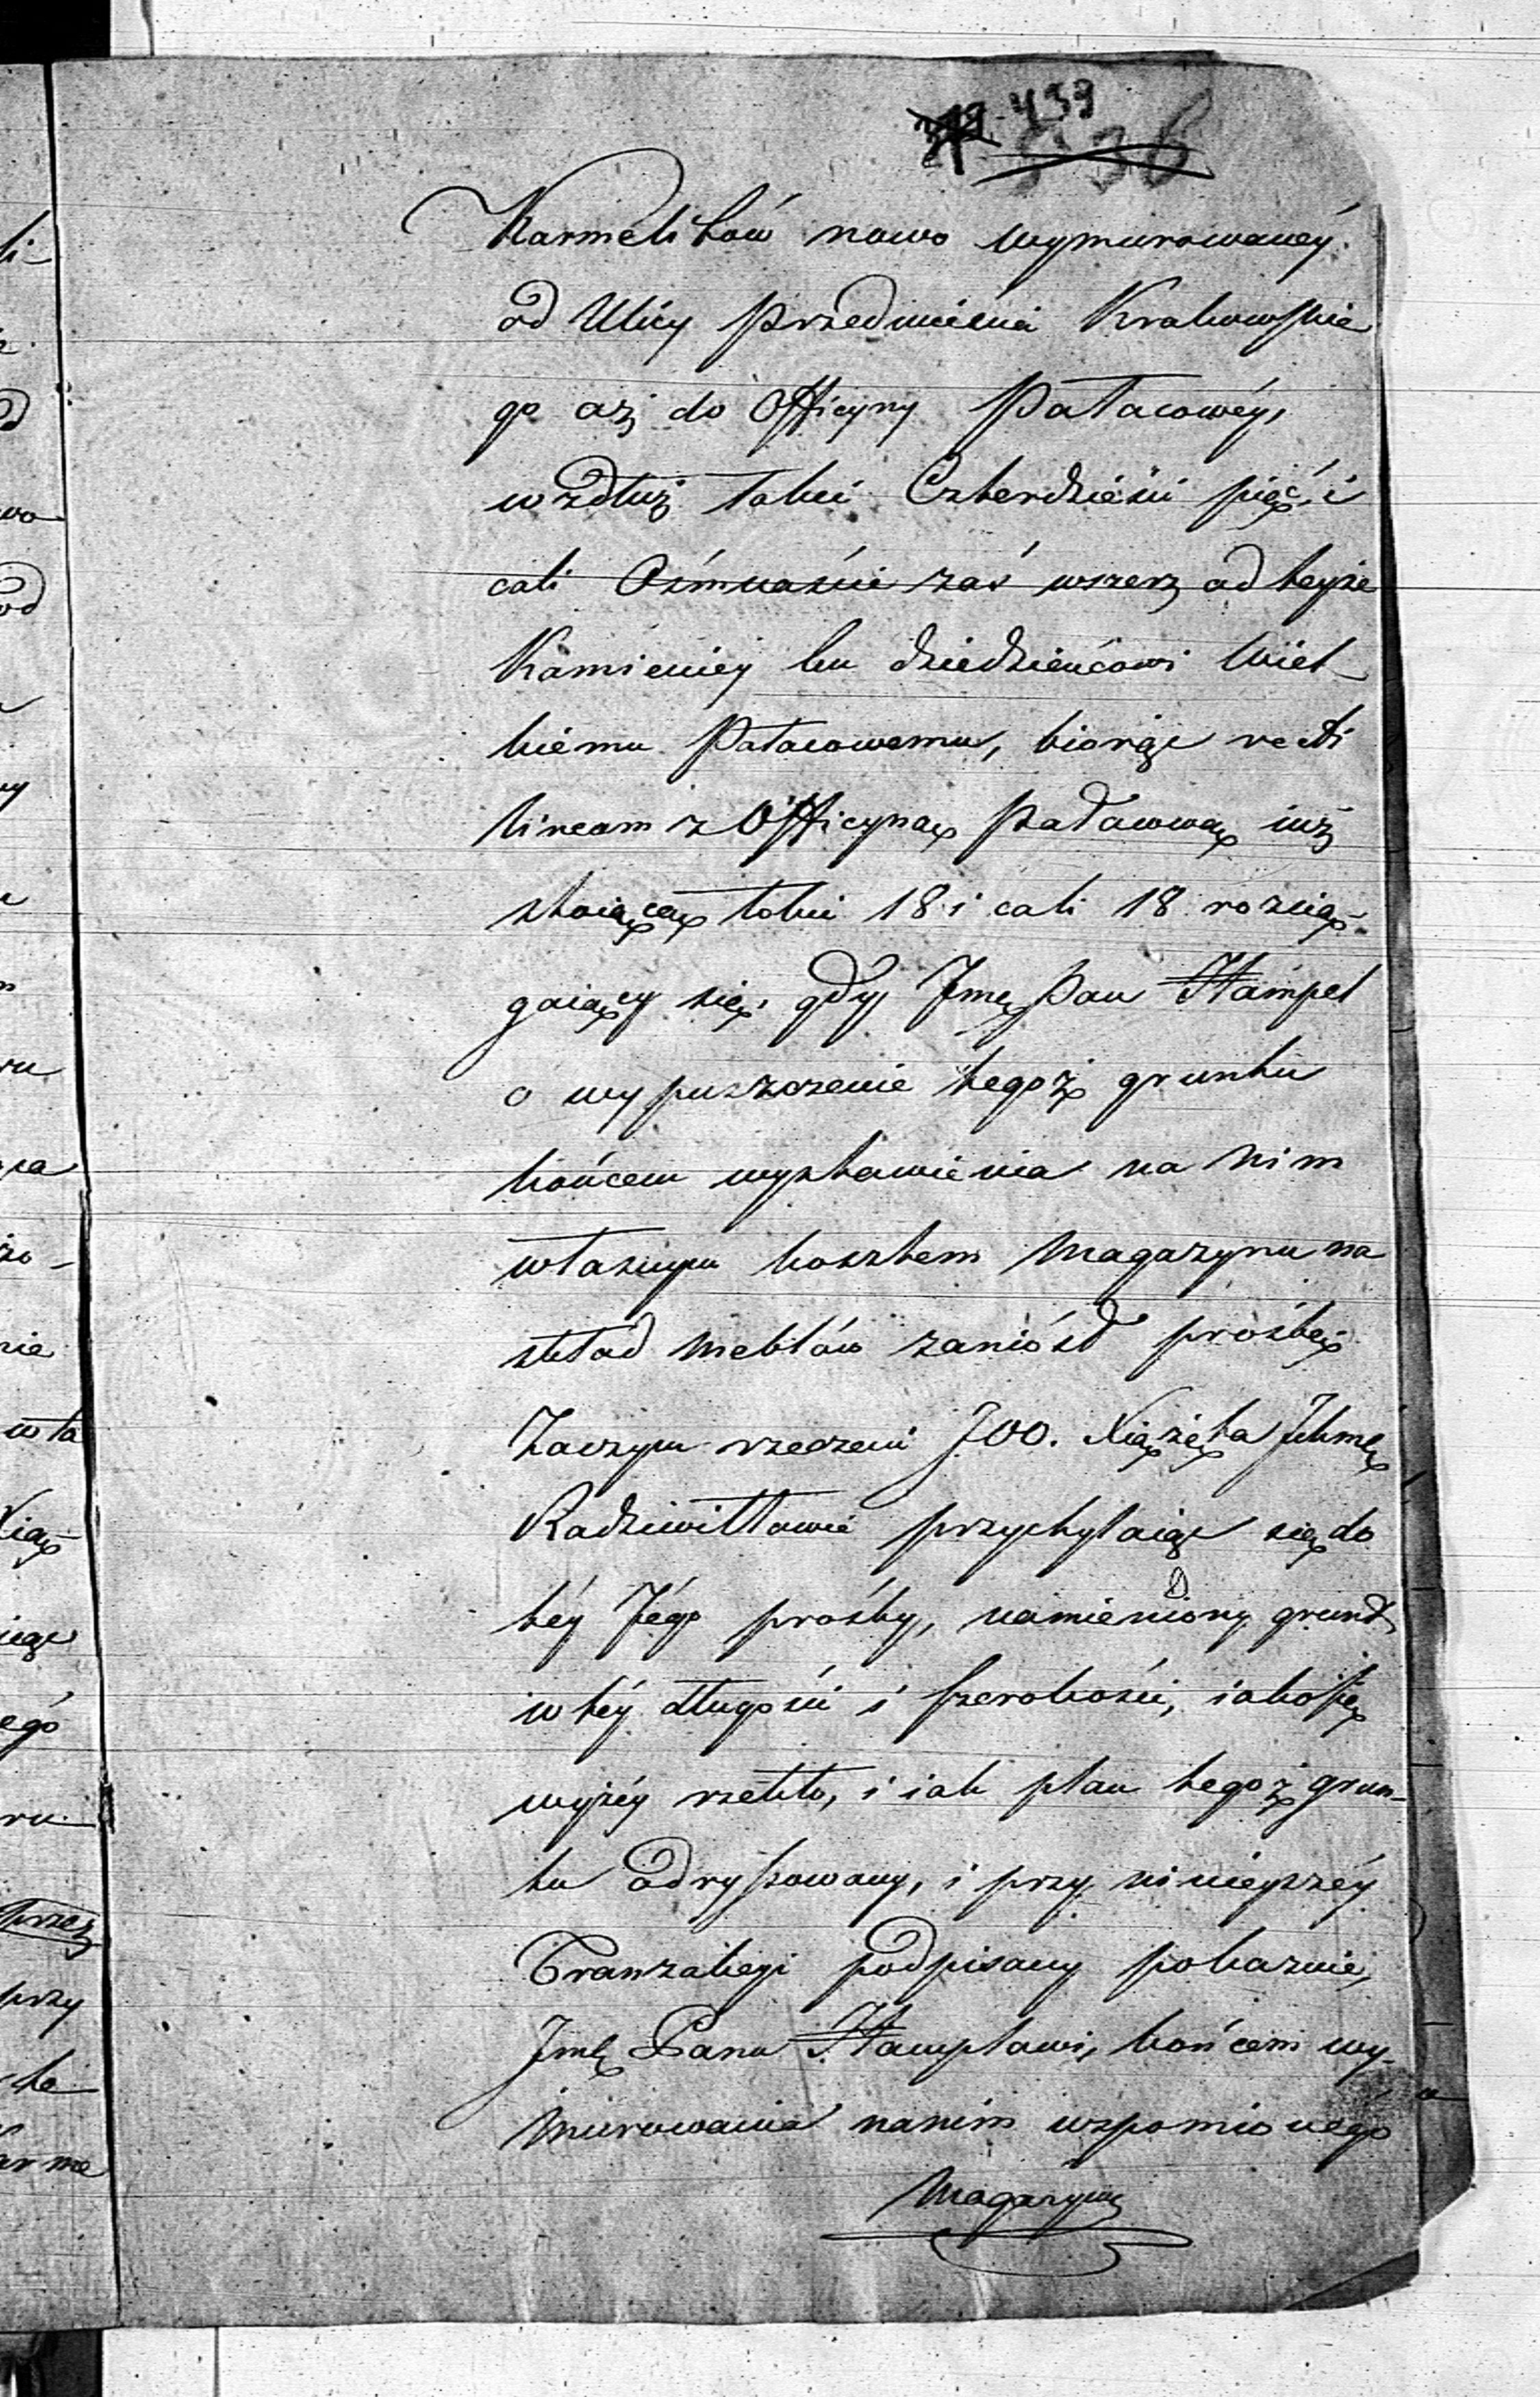 439
536
Karmelitów nowo wymurowanéy
od Ulicy przedmieścia Krakowskie
go aż do Officyny Pałacowéy,
wzdłuż łokci Czterdzieści pięć, i
cali Ośmnaście zaś wszerz od teyże
Kamienicy ku dziedzińcowi Wiel
kiemu Pałacowemu, biorąc recti
lineam z Officyną Pałacową iuż
stoiącą łokci 18 i cali 18 rozcią-
gaiący się, gdy Jmć Pan Hampel
o wypuszczenie tegoż gruntu
końcem wystawienia na nim
własnym kosztem Magazynu na
skład Meblów zaniósł prośbę.
Zaczym rzeczeni JOO. Xiążęta Ichmć
Radziwiłłowie przychylaiąc się do
téy Jégo prośby, namieniony grunt
w téy długości i szerokości, iako się
wyżéy rzekło, i iak plan tegoż grun-
tu odrysowany, i przy ninieyszéy
Tranzakcyi podpisany pokazuie,
Jmć Panu Hamplowi, końcem wy-
murowania na nim wspomionego
Magazynu
li-
wo
od
ru
nie
wła
Xią-
égo
ru
przez
przy